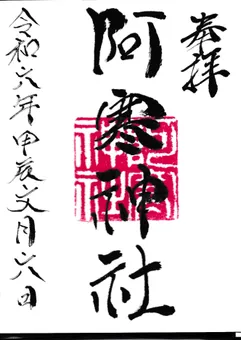 奉拝
阿寒神社
令和六年甲辰文月六日